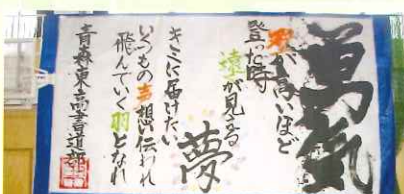 勇氣
が高いほど
登った時
が見える
夢
キミに届けたい
いくつもの 想い伝われ
飛んでいく羽となれ
青森東高書道部